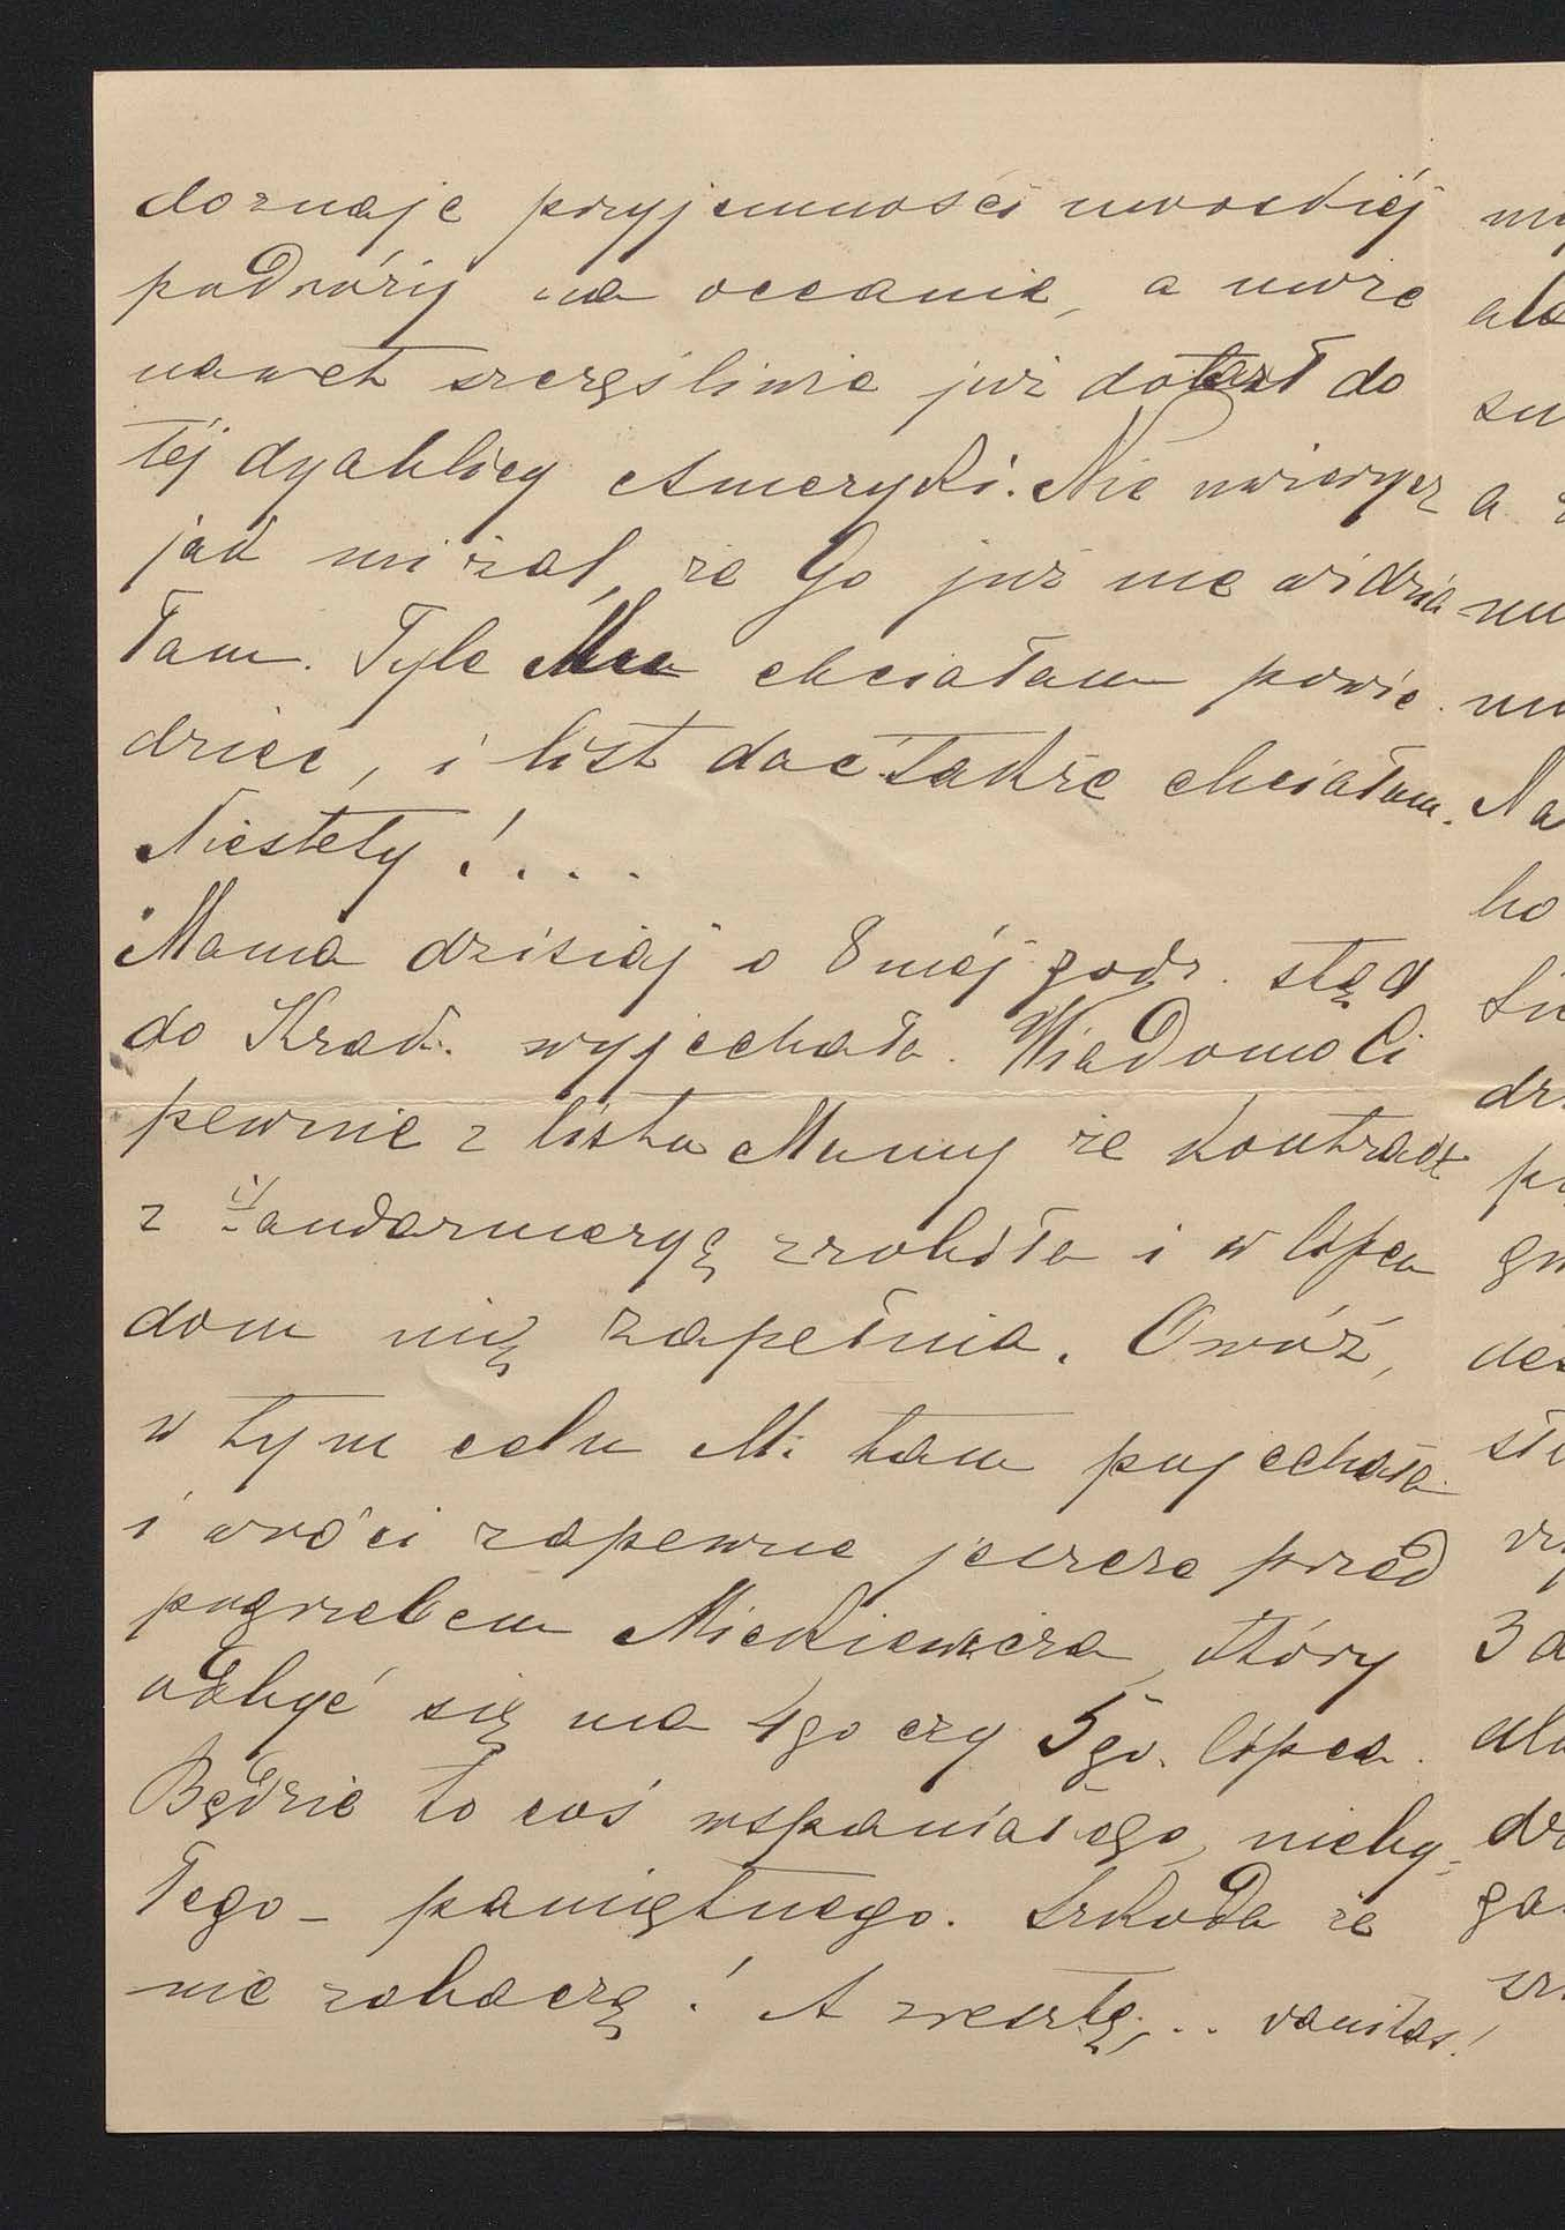 doznaje przyjemności morskiéj
podróży na oceanie, a może
nawet szczęśliwie już dotarł do
téj dyablicy Ameryki. Nie uwierzysz
jak mi żal, że Go już nie widzia-
łam. Tyle Mu chciałam powie-
dzieć, i list dać także chciałam.
Niestety!...
Mama dzisiaj o 8méj godz. stąd
do Krak. wyjechała. Wiadomo Ci
pewnie z listu Mamy że kontrakt
z żandarmeryą zrobiła i w lipcu
dom nią zapełnia. Owóż,
w tym celu M. tam pojechała
i wróci zapewne jeszcze przed
pogrzebem Mickiewicza, który
odbyć się ma 4go czy 5go. lipca.
Będzie to coś wspaniałego, nieby-
łego – pamiętnego. Szkoda że
nie zobaczę! A zresztą,... vanitas!